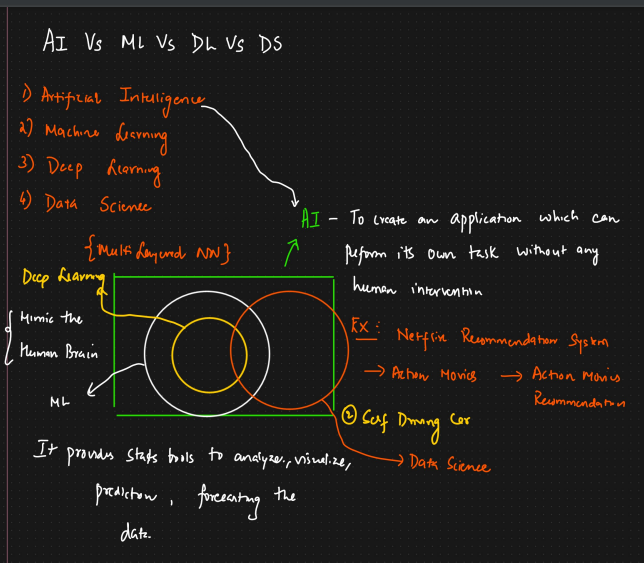 AI Vs ML Vs DL Vs DS
1) Artificial Intelligence
2) Machine Learning
3) Deep Learning
4) Data Science
AI – To create an application which can
perform its own task without any
human intervention
{Multi Layered NN}
Deep Learning
Mimic the
Human Brain
ML
Ex:
Netflix Recommendation System
→ Action Movies → Action Movies
Recommendation
② Self Driving Car
→ Data Science
It provides stats tools to analyze, visualize,
prediction, forecasting the
data.